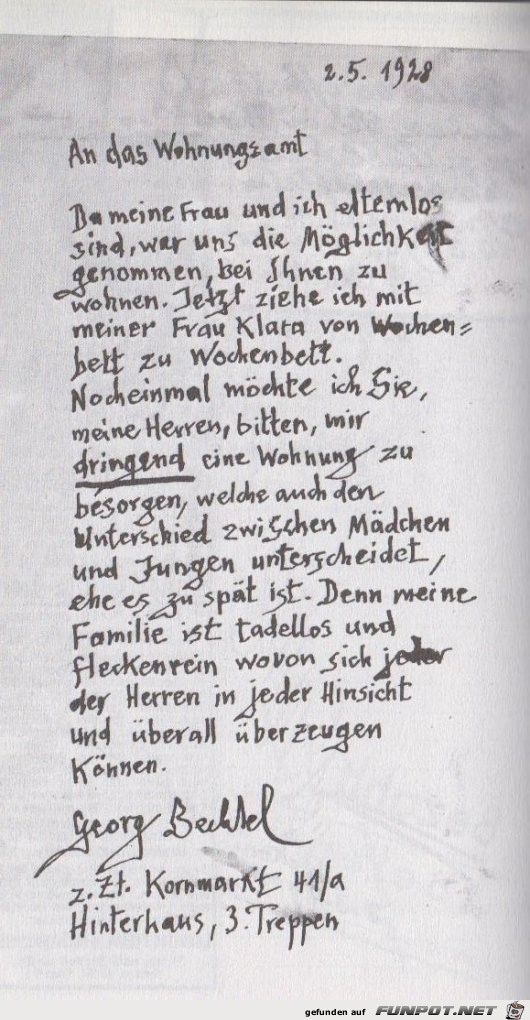 2.5. 1928
An das Wohnungsamt
Da meine Frau und ich elternlos
sind, war uns die Möglichkeit
genommen, bei Ihnen zu
wohnen. Jetzt ziehe ich mit
meiner Frau Klara von Wochen=
bett zu Wochenbett.
Nocheinmal möchte ich Sie,
meine Herren, bitten, mir
dringend eine Wohnung zu
besorgen, welche auch den
Unterschied zwischen Mädchen
und Jungen unterscheidet,
ehe es zu spät ist. Denn meine
Familie ist tadellos und
fleckenrein wovon sich jeder
der Herren in jeder Hinsicht
und überall überzeugen
können.
Georg Bechtel
z. Zt. Kornmarkt 41/a
Hinterhaus, 3. Treppen
gefunden auf FUNPOT.NET